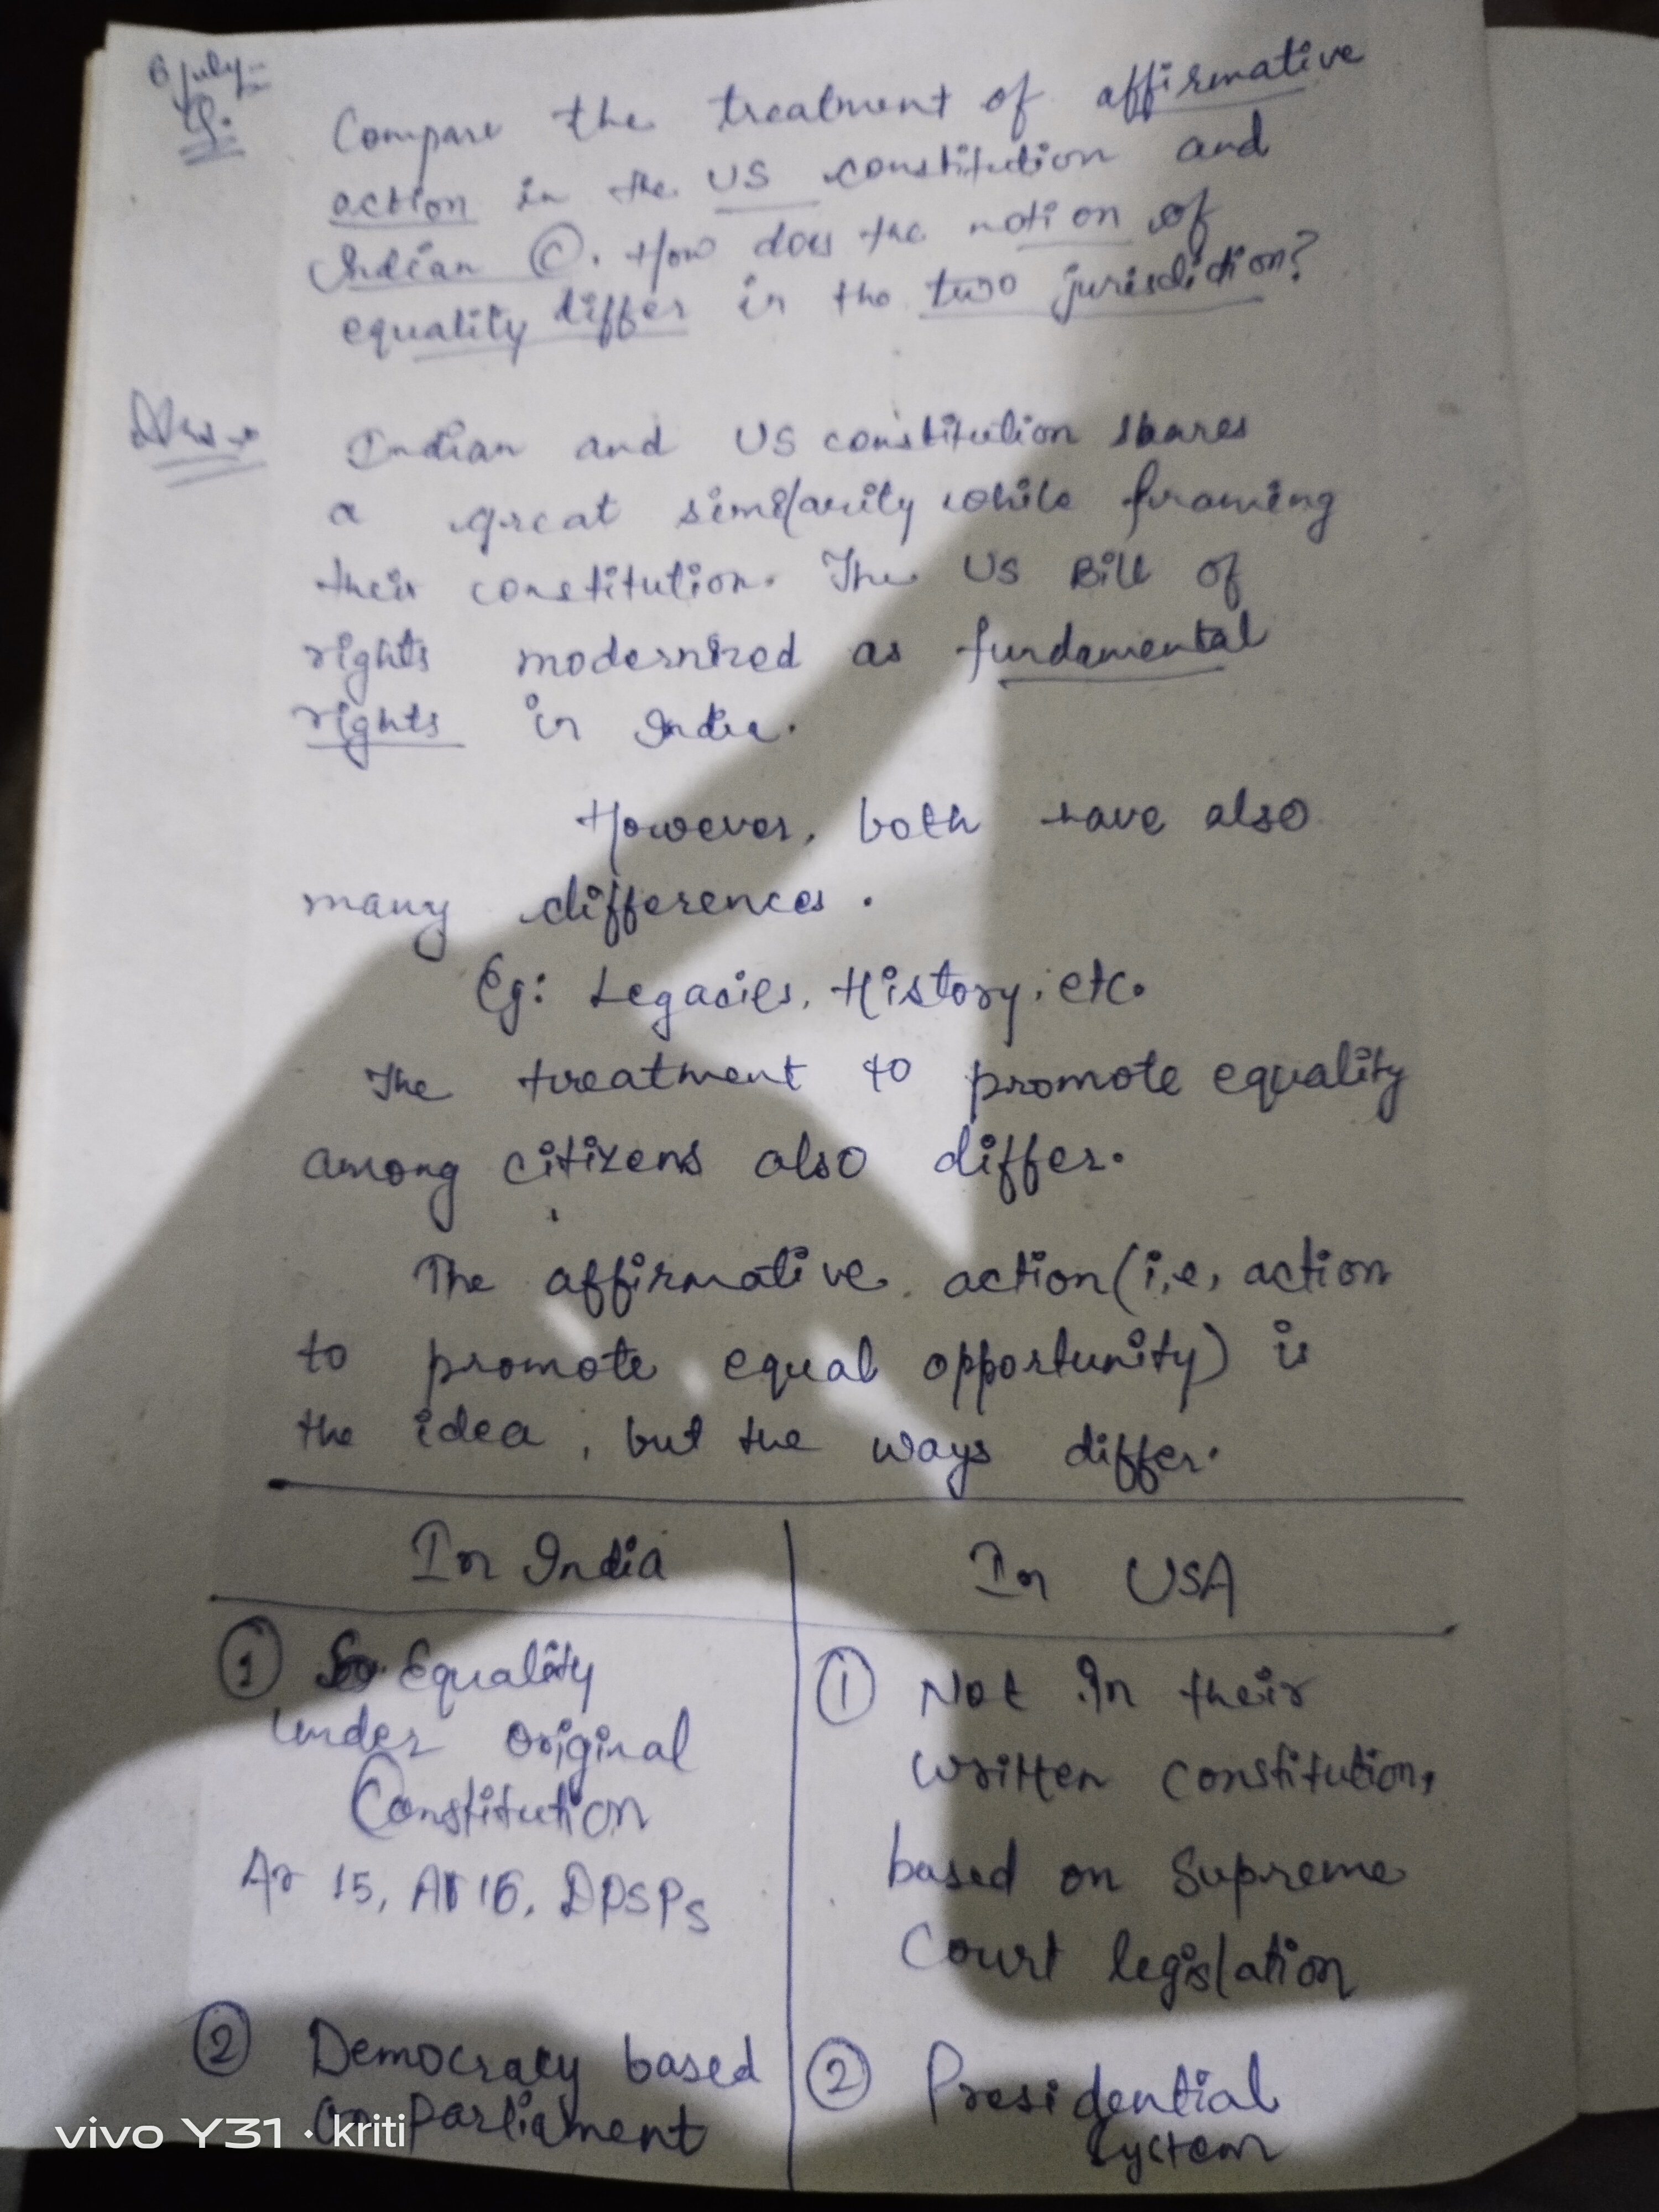 6 July
Q. Compare the treatment of affirmative
action in the US constitution and
Indian ©. How does the notion of
equality differ in the two jurisdiction?
Ans → Indian and US constitution shares
a great similarity while framing
their constitution. The US Bill of
rights modernized as fundamental
rights in India.
However, both have also
many differences.
Eg: Legacies, History, etc.
The treatment to promote equality
among citizens also differ.
The affirmative action (i.e, action
to promote equal opportunity) is
the idea, but the ways differ.
In India
① Equality
under original
Constitution
Ar 15, Ar 16, DPSPs
② Democracy based
on Parliament
In USA
① Not In their
written constitution,
based on Supreme
Court legislation
② Presidential
System
vivo Y31 · kriti